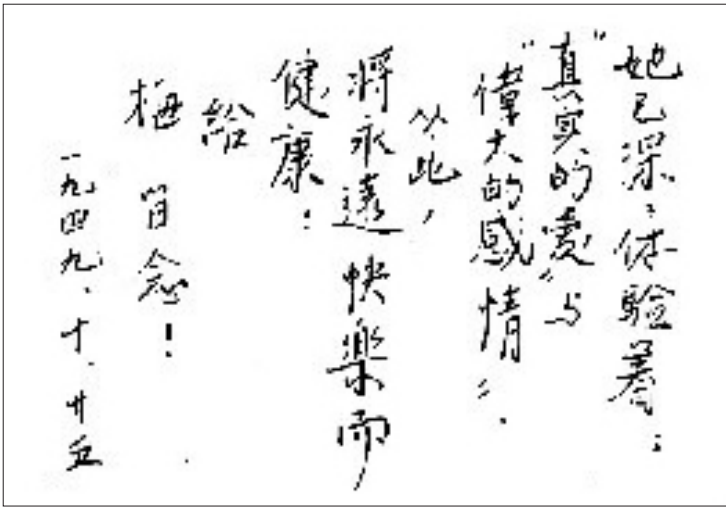 她已深深体验着：
“真实的爱”与
“伟大的感情”．
从此，
将永遠快樂而
健康！
給
梅 留念！
一九四九、十、廿五